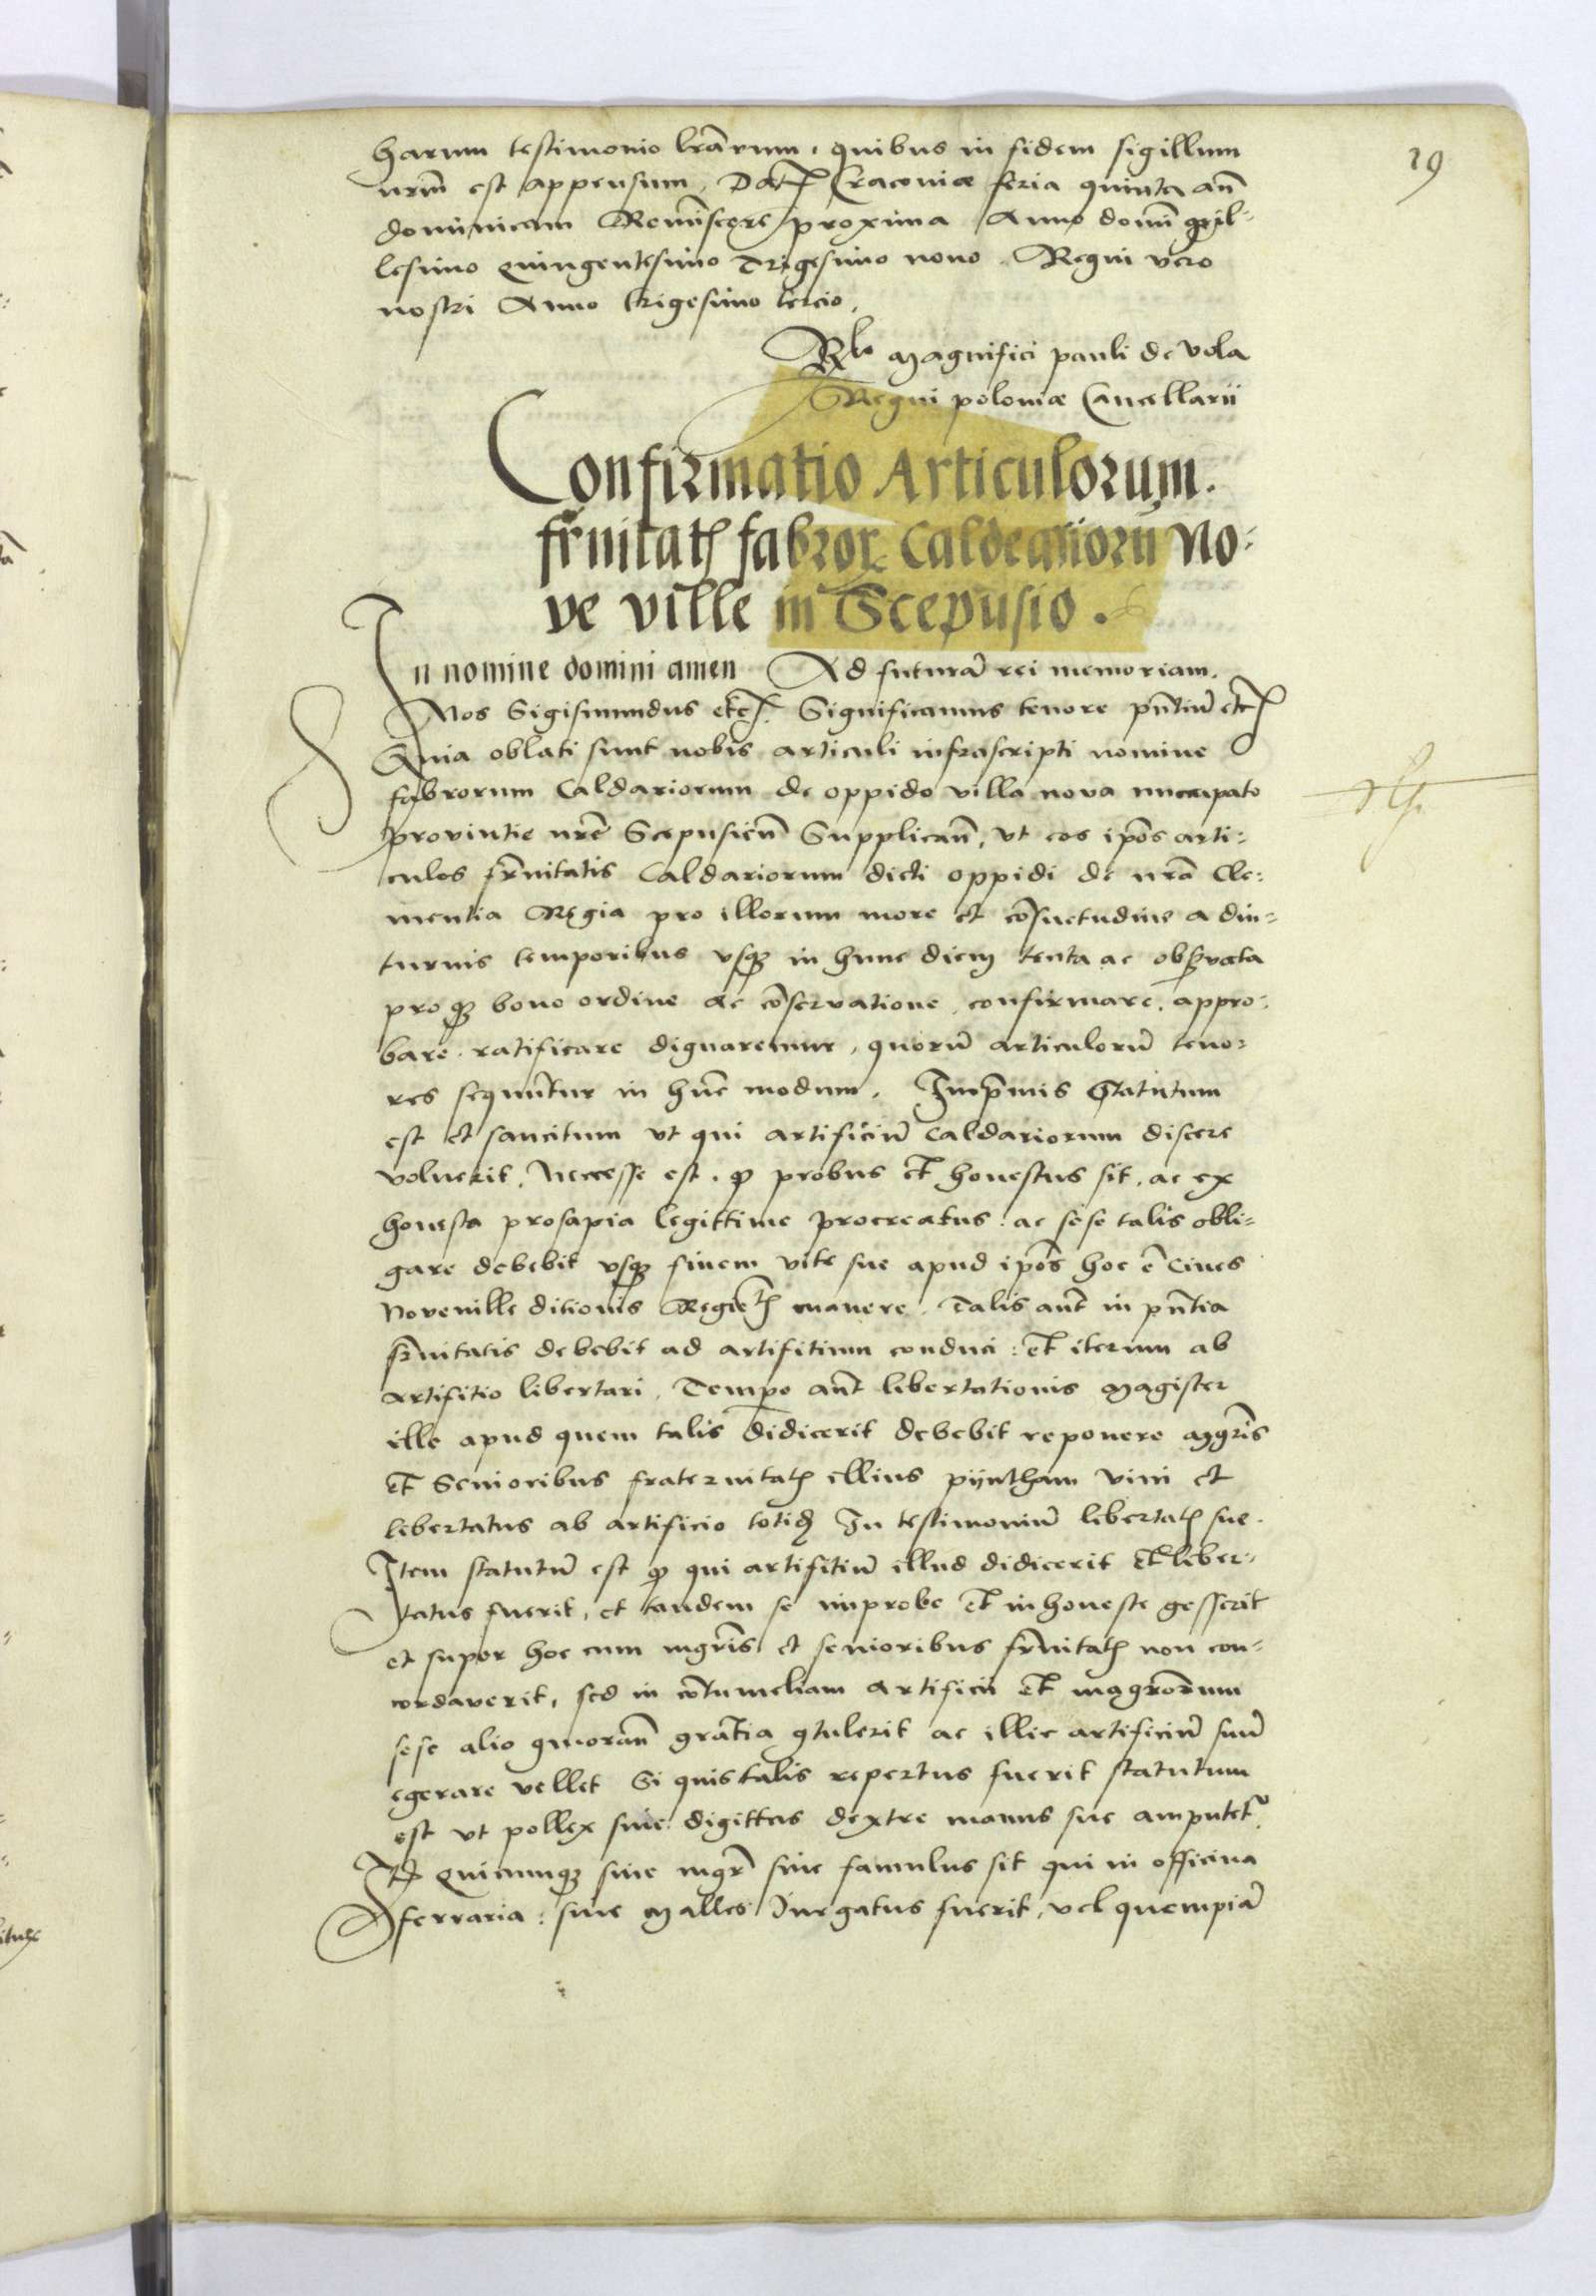 19
harum testimonio lrārum, quibus in fidem sigillum
nrm̄ est appensum, Dat Cracoviæ feria quinta an̄
dominicam Reminiscere proxima Anno domī Mil-
lesimo quingentesimo Trigesimo nono. Regni vero
nostri Anno trigesimo tercio,
Rlo Magnifici pauli de vola
Regni poloniæ Cancellarii
Confirmatio Articulorum.
fr̄nitatꝭ fabroꝝ Caldeariorū No-
ve ville in Scepusio.
In nomine domini amen Ad futurā rei memoriam.
Nos Sigismundus etcꝭ. Significamus tenore pn̄tiū etcꝭ
Quia oblati sunt nobis articuli infrascripti nomine
fabrorum Caldariorum de oppido villa nova nuncupato
provintie nrē Scepusien̄ Supplican̄, vt eos ipōs arti-
culos fr̄nitatis Caldariorum dicti oppidi de nrā Cle-
mentia Regia pro illorum more et cōsuetudine a diu-
turnis temporibus vsqꝫ in hunc diem tenta ac observata
pro qꝫ bono ordine ac cōservatione, confirmare, appro-
bare, ratificare dignaremur, quorū articulorū teno-
res sequūtur in hūc modum. Imp̄mis Statutum
est et sancitum vt qui artificiū Caldariorum discere
voluerit, Necesse est, ꝙ probus et honestus sit, ac ex
honesta prosapia legittime procreatus: ac sese talis obli-
gare debebit vsqꝫ finem vite sue apud ipōs hoc ē Cives
Noveville ditionis Regie manere. Talis aūt in pn̄tia
fr̄nitatis debebit ad artifitium conduci: et iterum ab
artifitio libertari. Tempe aūt libertationis Magister
ille apud quem talis didicerit debebit reponere mgr̄is
et Senioribus fraternitatꝭ illius pijntham vini et
libertatus ab artificio totidꝫ In testimoniū libertatꝭ sue.
Item statutū est ꝙ qui artifitiū illud didicerit et liber-
tatus fuerit, et tandem se improbe et inhoneste gesserit
et super hoc cum mgr̄is et senioribus fr̄nitatꝭ non con-
cordaverit, sed in cōtumeliam artificii et mgrōrum
sese alio ꝯmoran̄ grātia ꝯtulerit ac illic artificiū suū
egerare vellet Si quis talis repertus fuerit statutum
est vt pollex sive digittus dextre manus sue amputet
Itē quicunqꝫ sive mgr̄ sive famulus sit qui in officina
ferraria: sive Malleo Iurgatus fuerit, vel quempiā